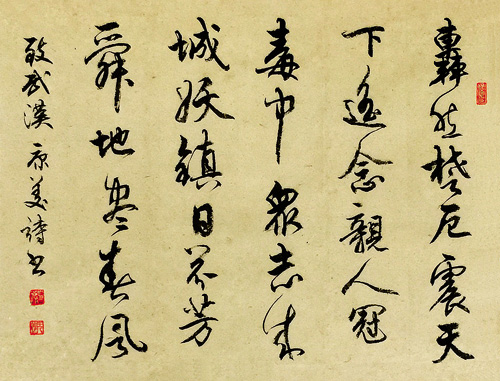 轟然楚厄震天
下遙念親人冠
毒中眾志成
城妖鎮日芬芳
舜地盡春風
致武漢 美詩書